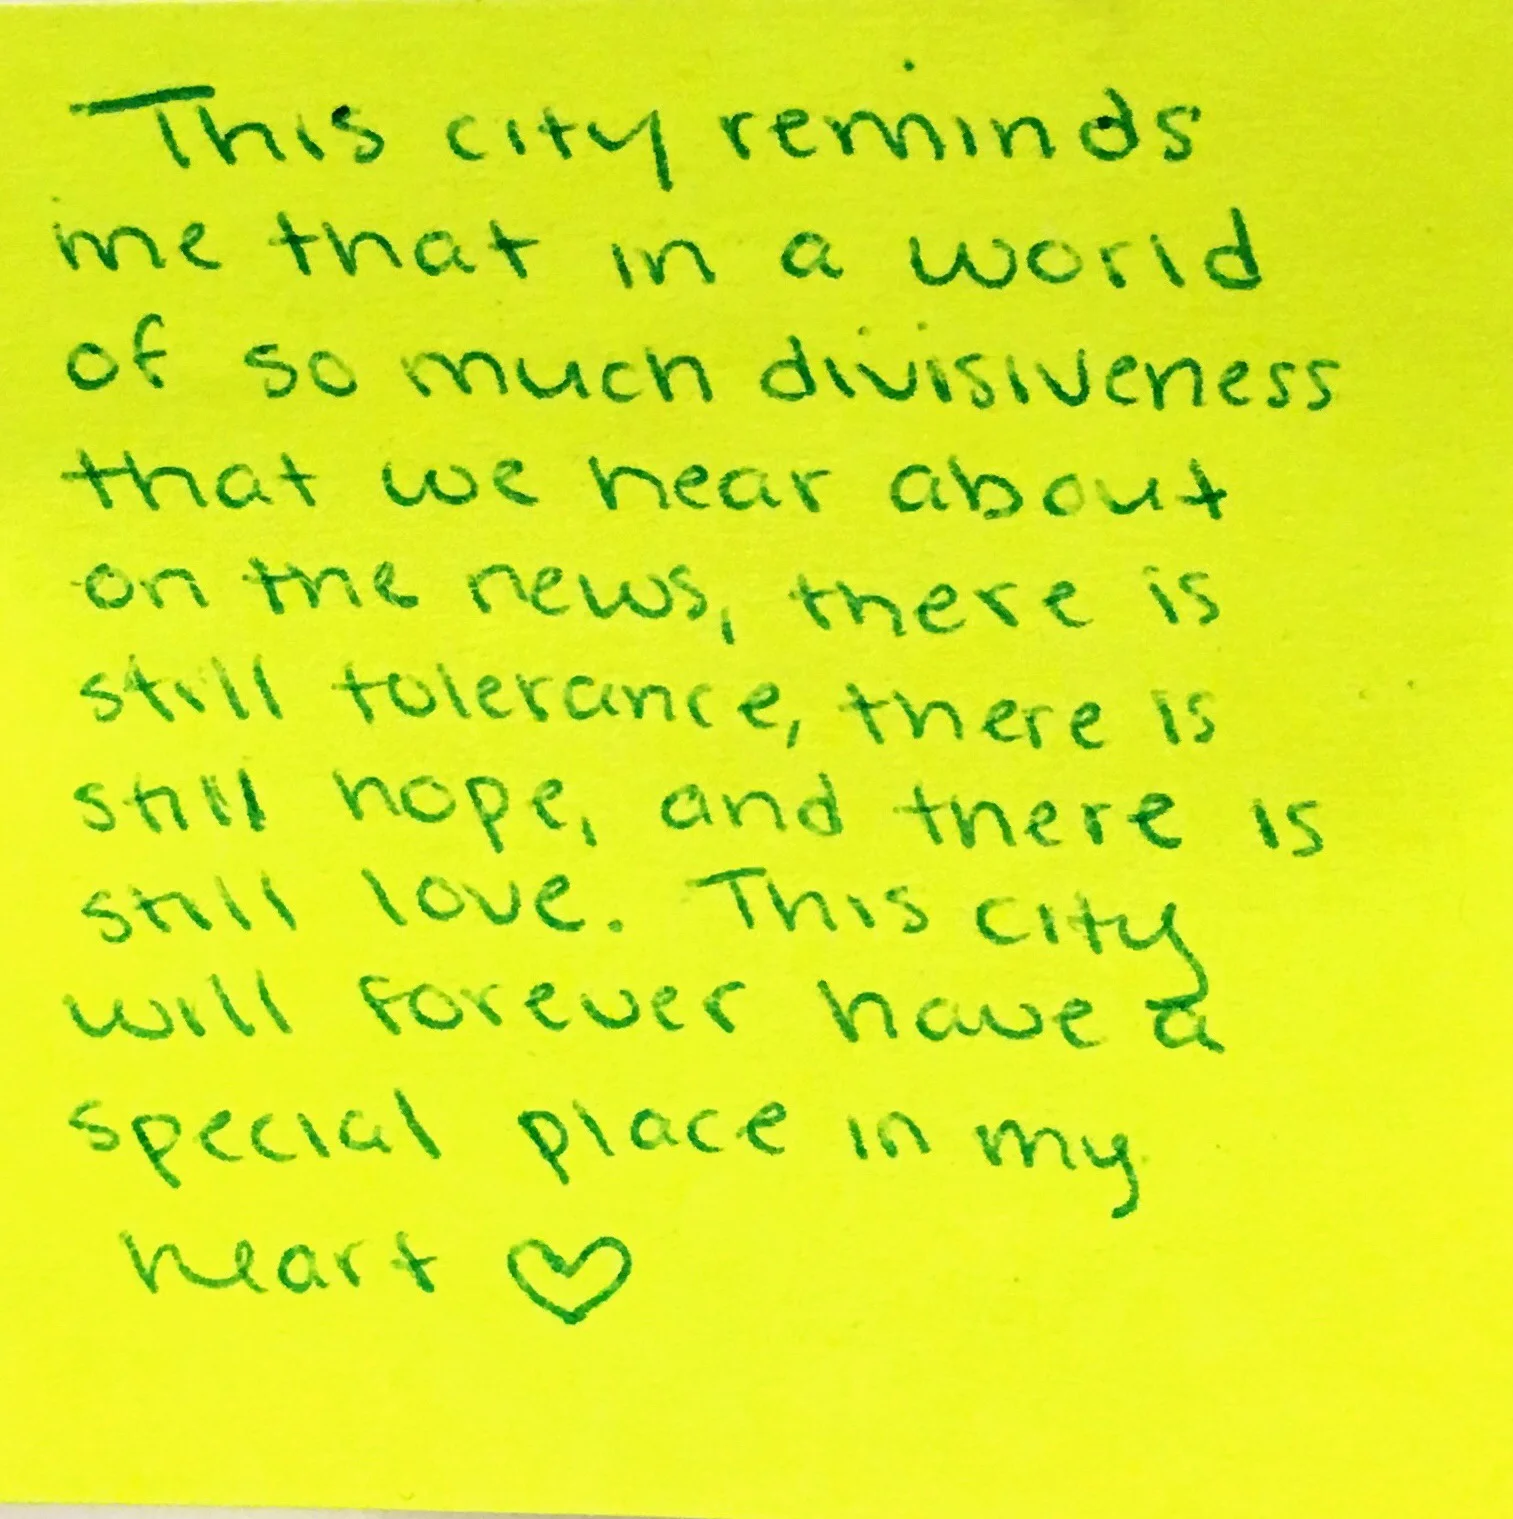 This city reminds
me that in a world
of so much divisiveness
that we hear about
on the news, there is
still tolerance, there is
still hope, and there is
still love. This city
will forever have a
special place in my
heart ♡